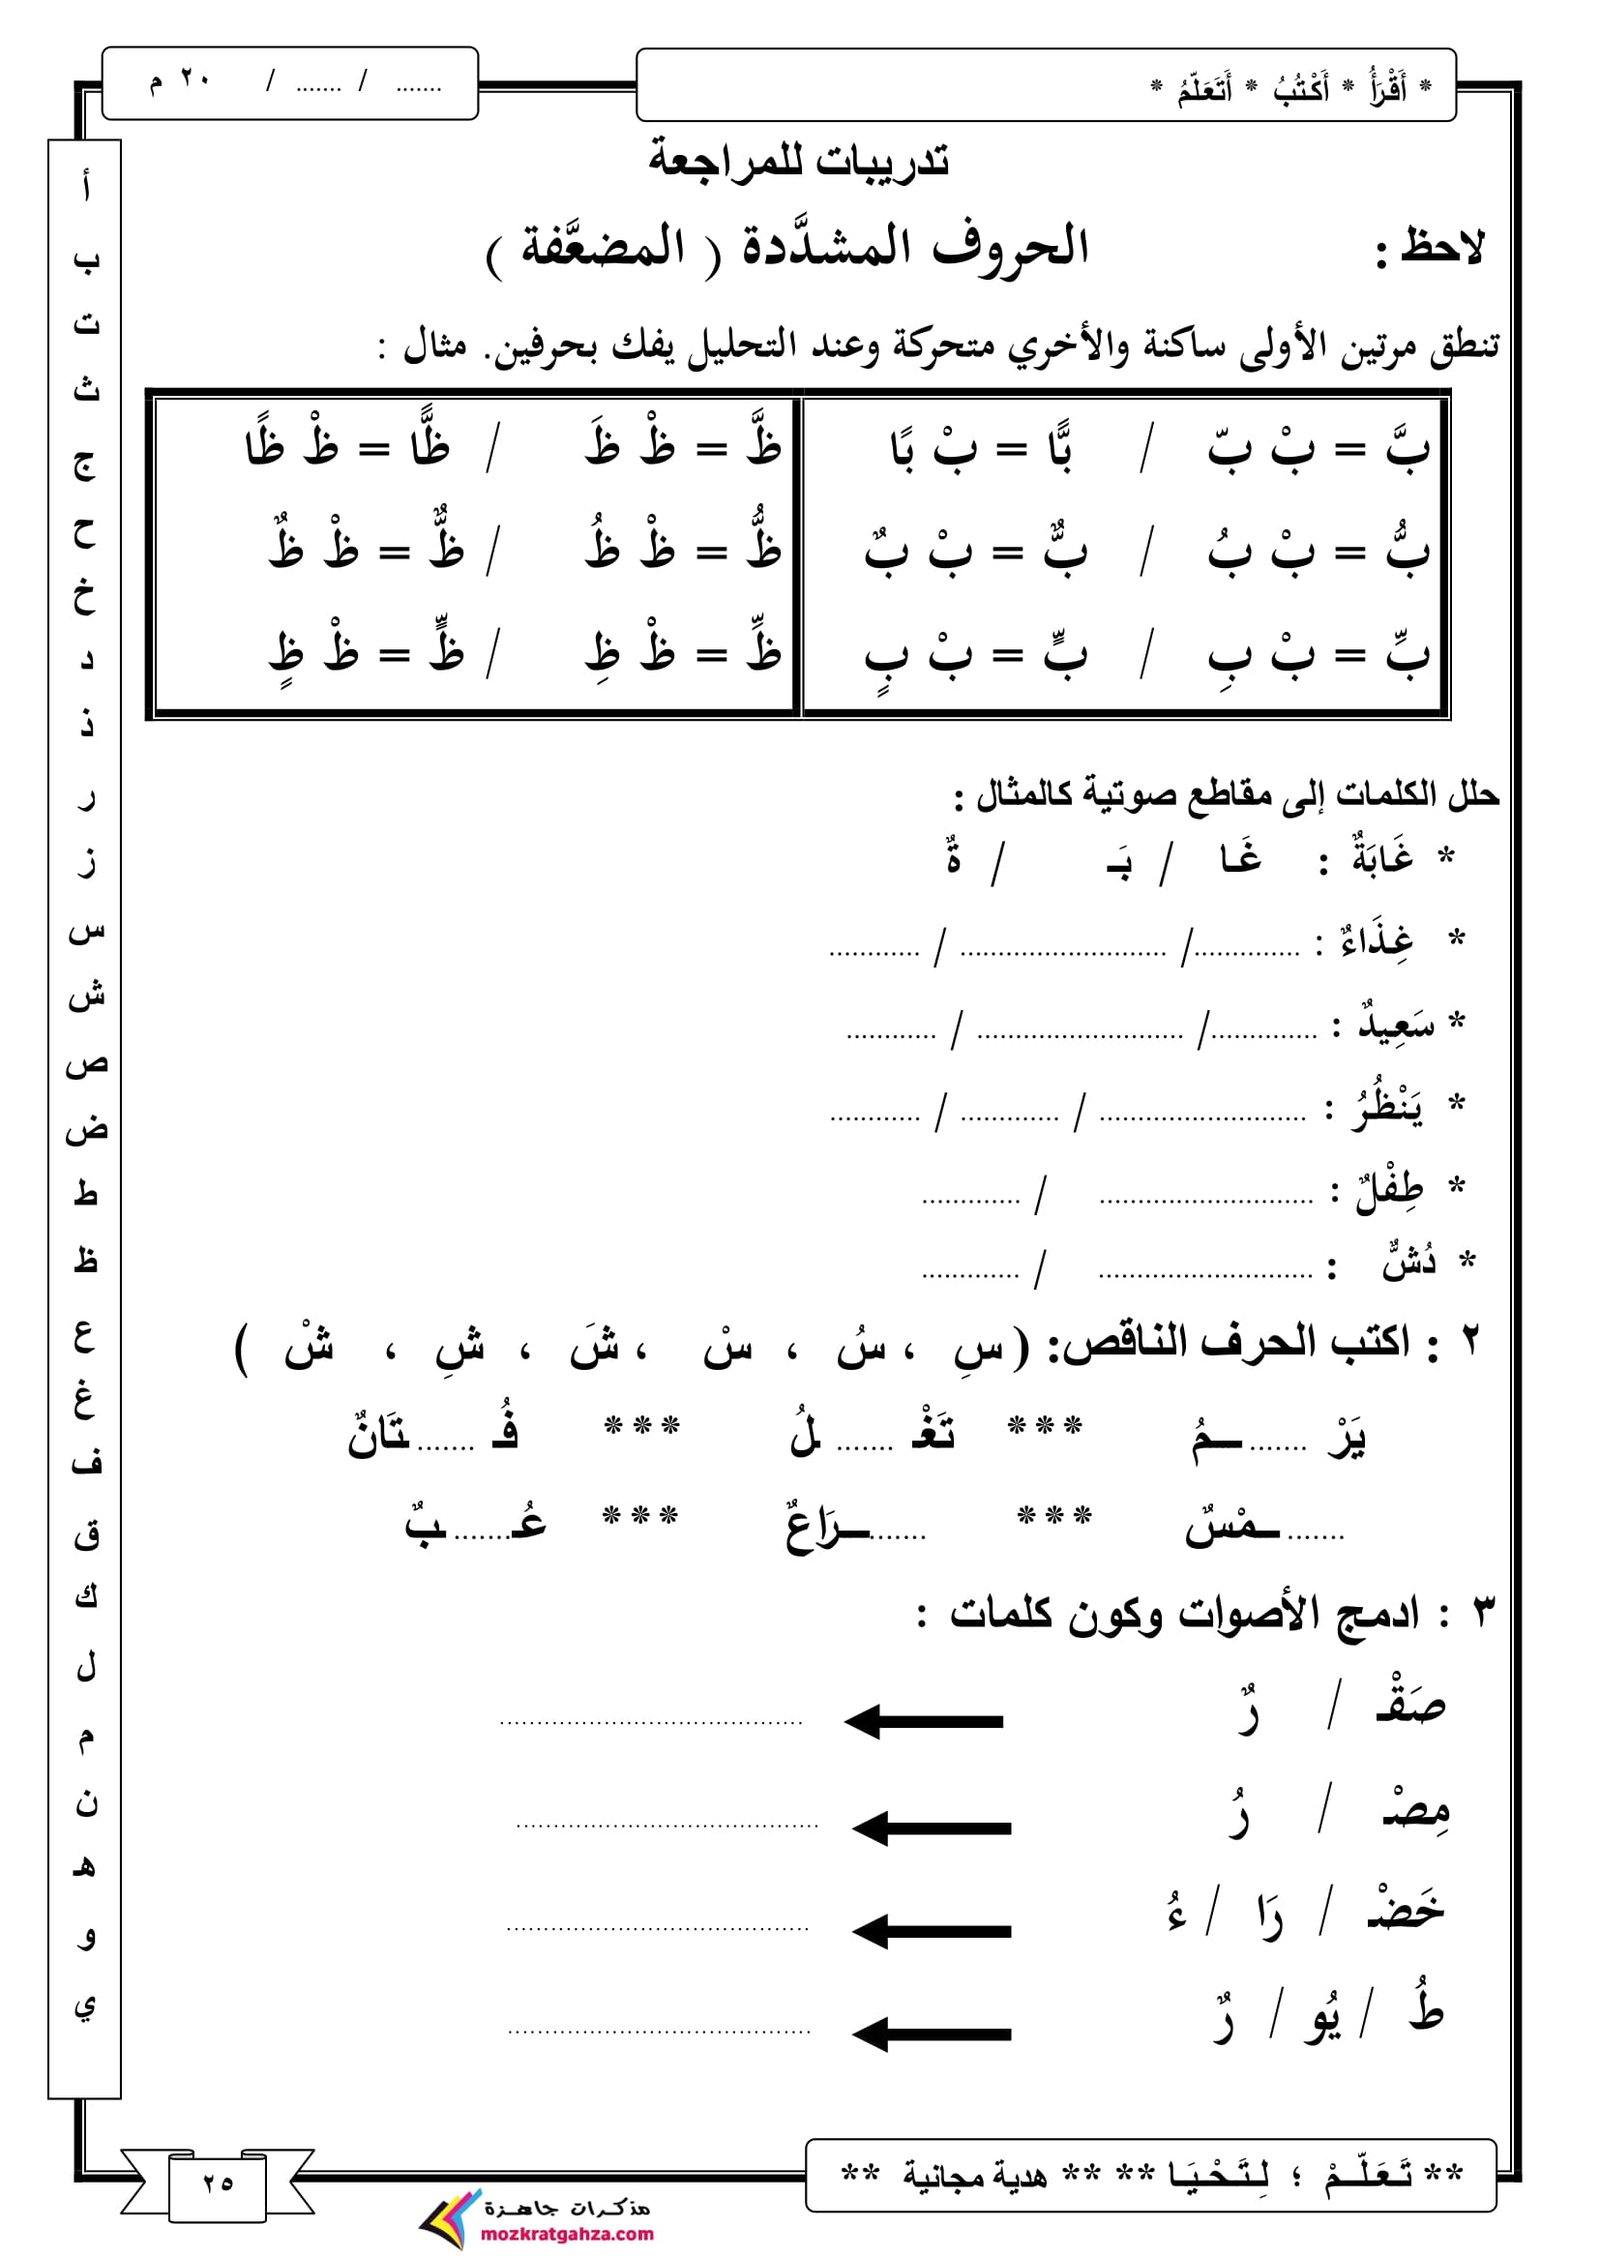 * أَقْرَأُ * أَكْتُبُ * أَتَعَلَّمُ *
....... / ....... / ٢٠ م
تدريبات للمراجعة
لاحظ : الحروف المشدَّدة ( المضعَّفة )
تنطق مرتين الأولى ساكنة والأخري متحركة وعند التحليل يفك بحرفين. مثال :
بَّ = بْ بّ / بًّا = بْ بًا
بُّ = بْ بُ / بٌّ = بْ بٌ
بِّ = بْ بِ / بٍّ = بْ بٍ
ظَّ = ظْ ظَ / ظًّا = ظْ ظًا
ظُّ = ظْ ظُ / ظٌّ = ظْ ظٌ
ظِّ = ظْ ظِ / ظٍّ = ظْ ظٍ
حلل الكلمات إلى مقاطع صوتية كالمثال :
* غَابَةٌ : غَا / بَـ / ةٌ
* غِذَاءٌ : .............. / ........................... / ............
* سَعِيدٌ : .............. / ........................... / ............
* يَنْظُرُ : ........................... / ............. / ............
* طِفْلٌ : ............................ / .............
* دُشٌّ : ............................ / .............
٢ : اكتب الحرف الناقص: ( سِ ، سُ ، سْ ، شَ ، شِ ، شْ )
يَرْ ....... ـمُ *** تَغْـ ....... ـلُ *** فُـ ....... ـتَانٌ
....... ـمْسٌ *** ....... ـرَاعٌ *** عُـ ....... ـبٌ
٣ : ادمج الأصوات وكون كلمات :
صَقْـ / رٌ ........................................
مِصْـ / رُ ........................................
خَضْـ / رَا / ءُ ........................................
طُ / يُو / رٌ ........................................
أ
ب
ت
ث
ج
ح
خ
د
ذ
ر
ز
س
ش
ص
ض
ط
ظ
ع
غ
ف
ق
ك
ل
م
ن
هـ
و
ي
** تَـعَـلَّـمْ ؛ لِـتَـحْـيَـا ** ** هدية مجانية **
٢٥
مذكرات جاهزة
mozkratgahza.com